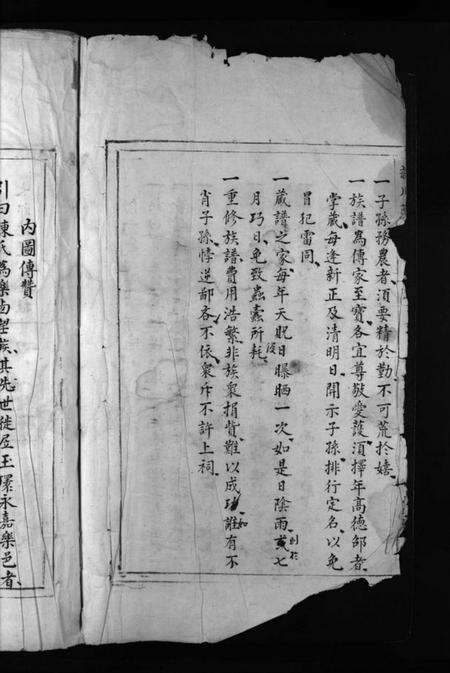 一子孫務農者須要精於勤不可荒於嬉
一族譜為傳家至寶各宜尊敬愛護須擇年高德邵者
掌藏每逢新正及清明日開示子孫排行定名以免
冒犯雷同
一藏譜之家每年天貺日曝晒一次如是日陰雨或七
月巧日免致蟲蠹所耗
一重修族譜費用浩繁非族衆捐貲難以成功如有不
肖子孫悖逆鄙吝不依衆斥不許上祠
內圖傳贊
引曰陳氏為樂南望族其先世徙居玉環永嘉樂邑者